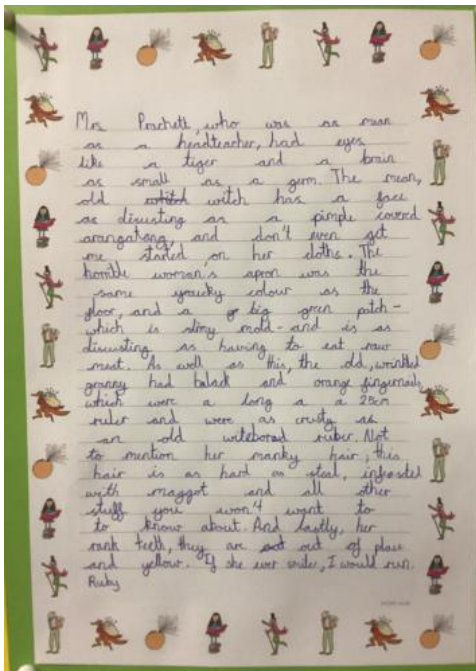 Mrs Prachett, who was as mean
as a headteacher, had eyes
like a tiger and a brain
as small as a germ. The mean,
old witch has a face
as disusting as a pimple covered
arangatang, and don't even get
me started on her cloths. The
horrible woman's apron was the
same youcky colour as the
floor, and a big green patch -
which is slimy mold - and is as
discusting as having to eat raw
meat. As well as this, the old, wrinkled
granny had balack and orange fingernails,
which were a long a a 25cm
ruler and were as crusty as
an old witeborad ruber. Not
to mention her manky hair, this
hair is as hard as steal, infested
with maggot and all other
stuff you won't want to
to know about. And lastly, her
rank teeth, they are out of place
and yellow. If she ever smiles, I would run.
Ruby